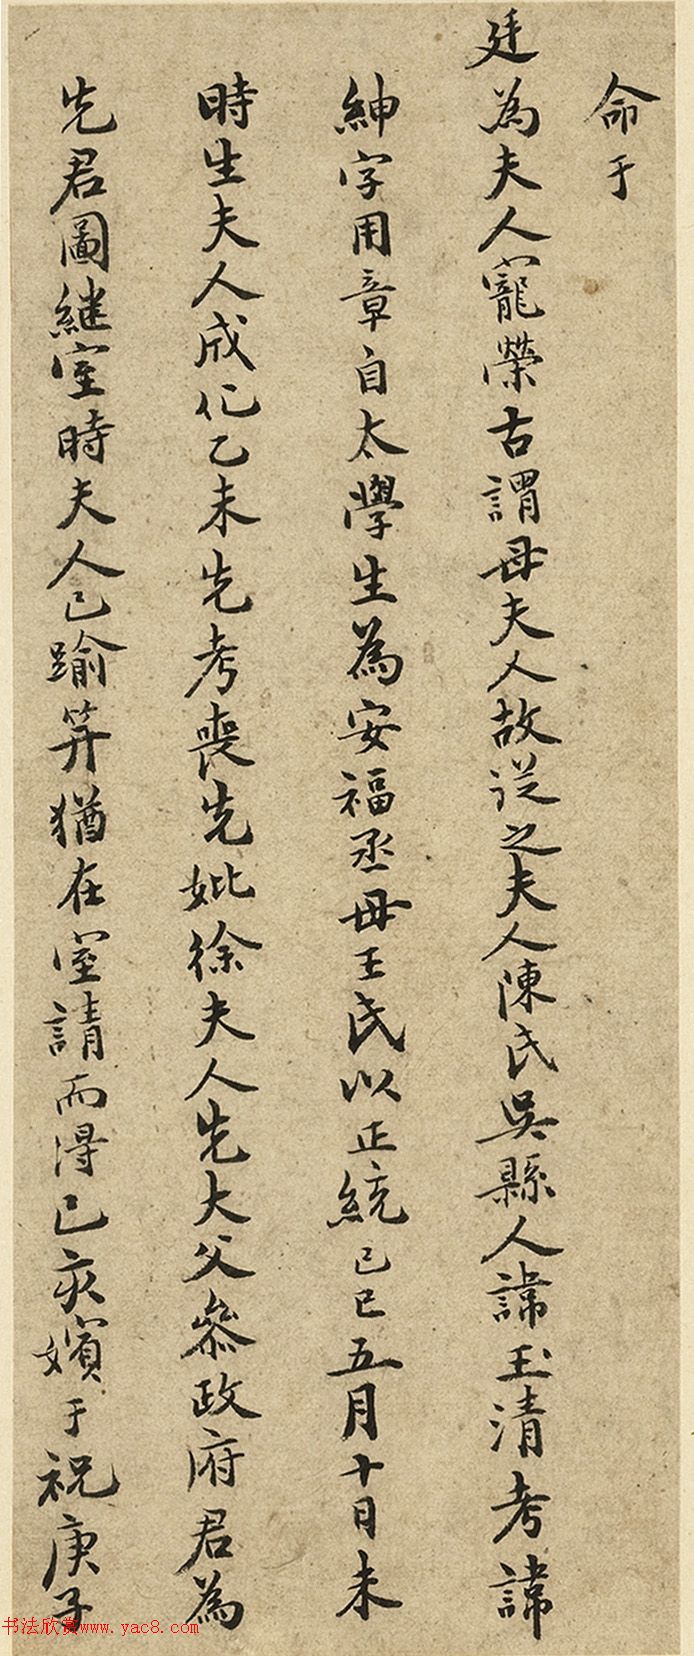 命于
廷為夫人寵榮古謂母夫人故從之夫人陳氏吳縣人諱玉清考諱
紳字用章自太學生為安福丞母王氏以正統己巳五月十日未
時生夫人成化乙未先考喪先妣徐夫人先大父叅政府君為
先君圖継室時夫人已踰笄猶在室請而得己亥嬪于祝庚子
书法欣赏www.yac8.com